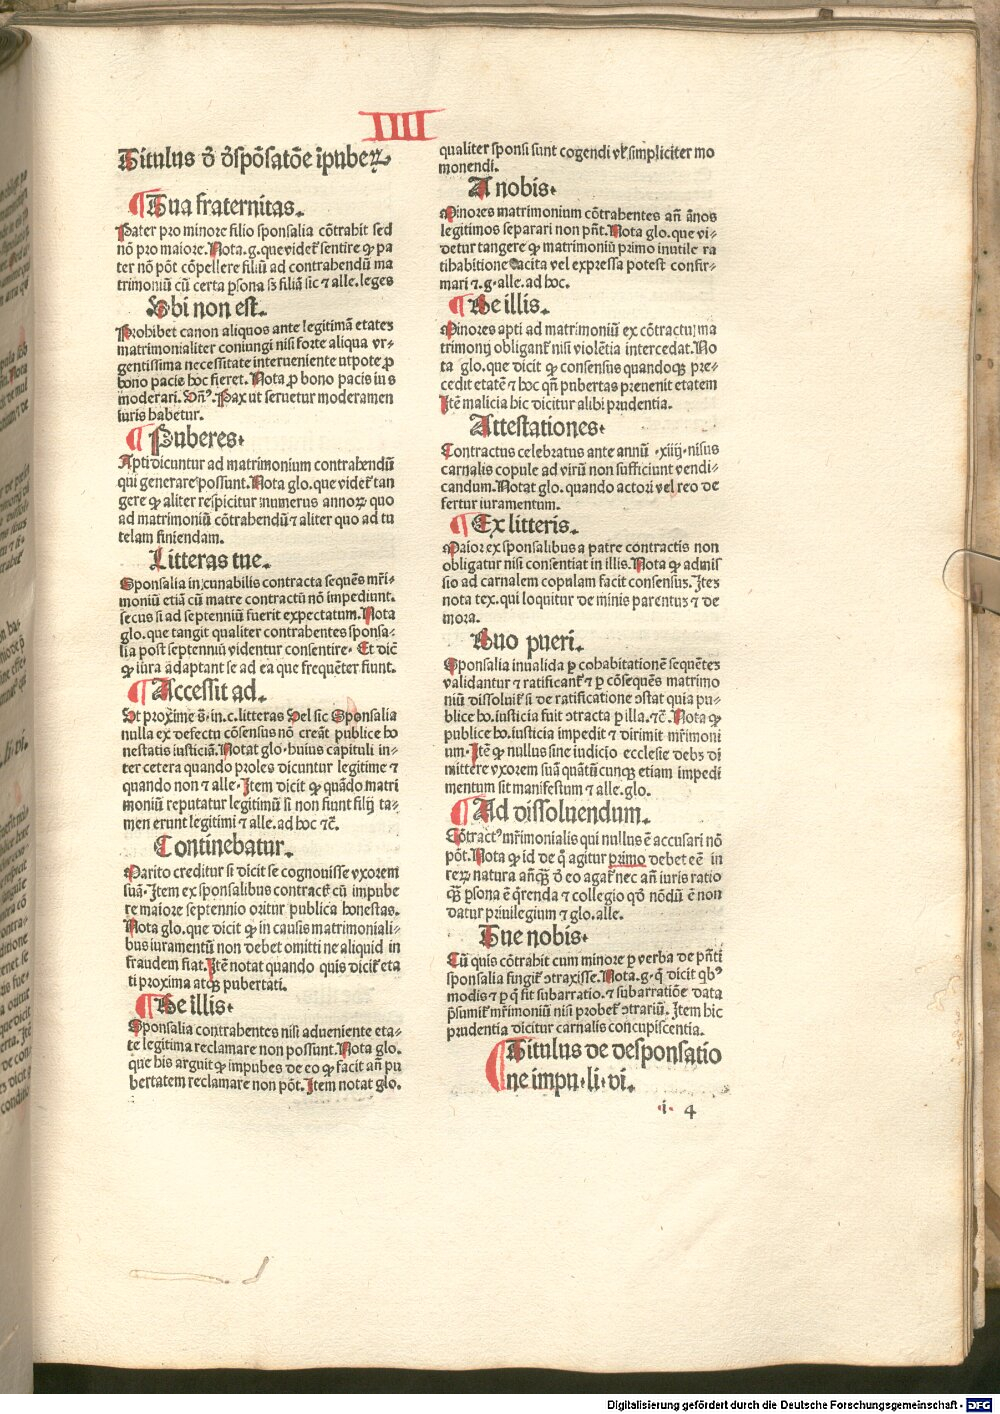 IIII
Titulus d̄ d̄spōsatōe īpubeꝝ
Tua fraternitas.
Pater pro minore filio sponsalia cōtrahit sed
nō pro maiore. Nota .g. que videt᷑ sentire ꝙ pa
ter nō pōt cōpellere filiū ad contrahendū ma
trimoniū cū certa ꝑsona sꝫ filiā sic ⁊ alle. leges
Ubi non est.
Prohibet canon aliquos ante legitimā etates
matrimonialiter coniungi nisi forte aliqua vr-
gentissima necessitate interueniente utpote ꝓ
bono pacis hoc fieret. Nota ꝓ bono pacis ius
moderari. Pax ut seruetur moderamen
iuris habetur.
Puberes.
Apti dicuntur ad matrimonium contrahendū
qui generare possunt. Nota glo. que videt᷑ tan
gere ꝙ aliter respicitur numerus annoꝝ quo
ad matrimoniū cōtrahendū ⁊ aliter quo ad tu
telam finiendam.
Litteras tue.
Sponsalia in cunabilis contracta sequēs mr̄i-
moniū etiā cū matre contractū nō impediunt.
secus si ad septenniū fuerit expectatum. Nota
glo. que tangit qualiter contrahentes sponsa-
lia post septenniū videntur consentire. Et dic̄
ꝙ iura adaptant se ad ea que frequēter fiunt.
Accessit ad.
Ut proxime s. in .c. litteras Vel sic Sponsalia
nulla ex defectu cōsensus nō creāt publice ho
nestatis iusticiā. Notat glo. huius capituli in-
ter cetera quando proles dicuntur legitime ⁊
quando non ⁊ alle. Item dicit ꝙ quādo matri
moniū reputatur legitimū si non fiunt filij ta-
men erunt legitimi ⁊ alle. ad hoc ⁊c̄.
Continebatur.
Marito creditur si dicit se cognouisse vxorem
suā. Item ex sponsalibus contract᷑ cū impube
re maiore septennio oritur publica honestas.
Nota glo. que dicit ꝙ in causis matrimoniali-
bus iuramentū non debet omitti ne aliquid in
fraudem fiat. Itē notat quando quis dicit᷑ eta
ti proxima atqꝫ pubertati.
De illis.
Sponsalia contrahentes nisi adueniente eta-
te legitima reclamare non possunt. Nota glo.
que his arguit ꝙ impubes de eo ꝙ facit an̄ pu
bertatem reclamare non pōt. Item notat glo.
qualiter sponsi sunt cogendi vl᷑ simpliciter mo
monendi.
A nobis.
Minores matrimonium cōtrahentes an̄ ānos
legitimos separari non pn̄t. Nota glo. que vi-
detur tangere ꝙ matrimoniū primo inutile ra
tihabitione tacita vel expressa potest confir-
mari ⁊ .g. alle. ad hoc.
De illis.
Minores apti ad matrimoniū ex cōtractu ma
trimonij obligant᷑ nisi violētia intercedat. No
ta glo. que dicit ꝙ consensus quandoqꝫ pre-
cedit etatē ⁊ hoc qn̄ pubertas preuenit etatem
Itē malicia hic dicitur alibi prudentia.
Attestationes.
Contractus celebratus ante annū .xiiij. nisus
carnalis copule ad virū non sufficiunt vendi-
candum. Notat glo. quando actori vel reo de
fertur iuramentum.
Ex litteris.
Maior ex sponsalibus a patre contractis non
obligatur nisi consentiat in illis. Nota ꝙ admis
sio ad carnalem copulam facit consensus. Itez
nota tex. qui loquitur de minis parentus ⁊ de
mora.
Duo pueri.
Sponsalia inualida ꝑ cohabitationē sequētes
validantur ⁊ ratificant᷑ ⁊ ꝑ cōsequēs matrimo
niū dissoluit᷑ si de ratificatione ꝯstat quia pu-
blice ho. iusticia fuit ꝯtracta ꝑ illa. ⁊c̄. Nota ꝙ
publice ho. iusticia impedit ⁊ dirimit mr̄imoni
um. Itē ꝙ nullus sine iudicio ecclesie debꝫ di
mittere vxorem suā quātūcunqꝫ etiam impedi
mentum sit manifestum ⁊ alle. glo.
Ad dissoluendum.
Cōtract᷒ mr̄imonialis qui nullus ē accusari nō
pōt. Nota ꝙ id de q̄ agitur primo debet eē in
reꝝ natura an̄qꝫ d̄ eo agat᷑ nec an̄ iuris ratio
qꝫ ꝑsona ē q̄renda ⁊ collegio qd̄ nōdū ē non
datur priuilegium ⁊ glo. alle.
Tue nobis.
Cū quis cōtrahit cum minore ꝑ verba de pn̄ti
sponsalia fingit᷑ ꝯtraxisse. Nota .g. q̄ dicit qb᷒
modis ⁊ ꝑ q̄ fit subarratio. ⁊ subarratiōe data
p̄sumit᷑ mr̄imoniū nisi probet᷑ ꝯtrariū. Item hic
prudentia dicitur carnalis concupiscentia.
Titulus de desponsatio
ne impu. li. vi.
i 4
Digitalisierung gefördert durch die Deutsche Forschungsgemeinschaft - DFG